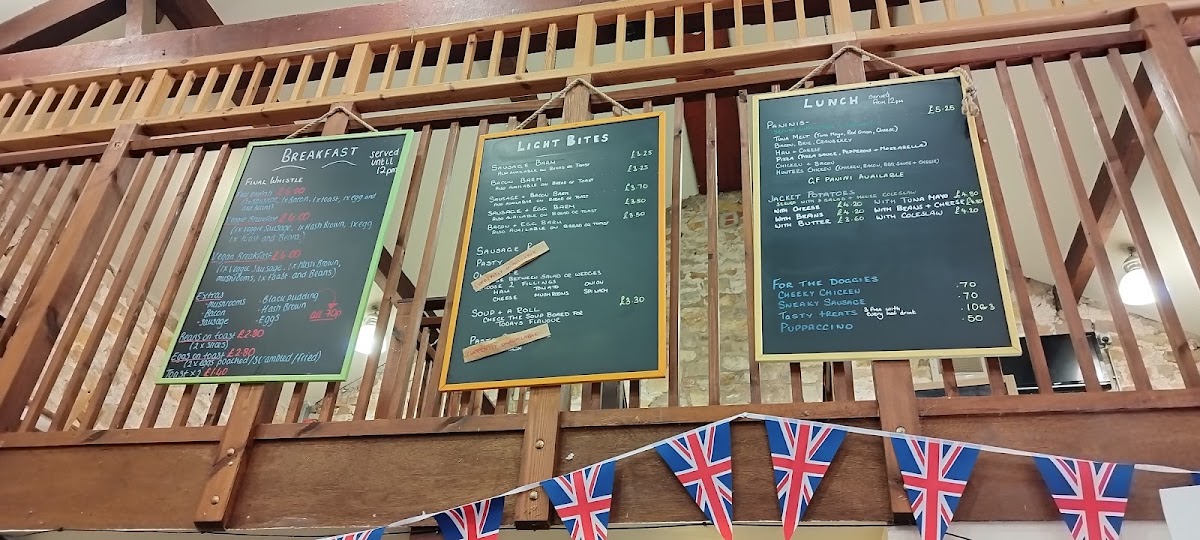 BREAKFAST served
until
12pm
FINAL WHISTLE
Full English £6.00
(1x Sausage, 1x Bacon, 1x toast, 1x egg and
Veggie Breakfast £6.00
(1x Veggie Sausage, 1x Hash Brown, 1x egg
1x toast and Beans)
Vegan Breakfast £6.00
(1x Veggie Sausage, 1x Hash Brown,
mushrooms, 1x toast and Beans)
Extras
-Mushrooms -Black pudding
-Bacon -Hash Brown
-Sausage -Eggs
all 70p
Beans on toast £2.80
(2 x slices)
Eggs on toast £2.80
(2 x eggs poached/scrambled/fried)
Toast x 2 £1.40
LIGHT BITES
SAUSAGE BARM £3.25
ALSO AVAILABLE ON BREAD OR TOAST
BACON BARM £3.25
ALSO AVAILABLE ON BREAD OR TOAST
SAUSAGE + BACON BARM £3.70
ALSO AVAILABLE ON BREAD OR TOAST
SAUSAGE + EGG BARM £3.50
ALSO AVAILABLE ON BREAD OR TOAST
BACON + EGG BARM £3.50
ALSO AVAILABLE ON BREAD OR TOAST
SAUSAGE
PASTY
BETWEEN SALAD OR WEDGES
2 FILLINGS
HAM TOMATO ONION
CHEESE MUSHROOMS SPINACH
SOUP + A ROLL £3.30
CHECK THE SOUP BOARD FOR
TODAYS FLAVOUR
LUNCH served
from 12pm
PANINIS- £5.25
TUNA MELT (TUNA MAYO, RED ONION, CHEESE)
BACON, BRIE, CRANBERRY
HAM + CHEESE
PIZZA (PIZZA SAUCE, PEPPERONI + MOZZARELLA)
CHICKEN + BACON
HUNTERS CHICKEN (CHICKEN, BACON, BBQ SAUCE + CHEESE)
GF PANINI AVAILABLE
JACKET POTATOES
SERVED WITH A SALAD + HOUSE COLESLAW
WITH CHEESE £4.20 WITH TUNA MAYO £4.80
WITH BEANS £4.20 WITH BEANS + CHEESE £4.80
WITH BUTTER £3.60 WITH COLESLAW £4.20
FOR THE DOGGIES
CHEEKY CHICKEN .70
SNEAKY SAUSAGE .70
TASTY TREATS 3 free with every hot drink 10@3
PUPPACCINO .50